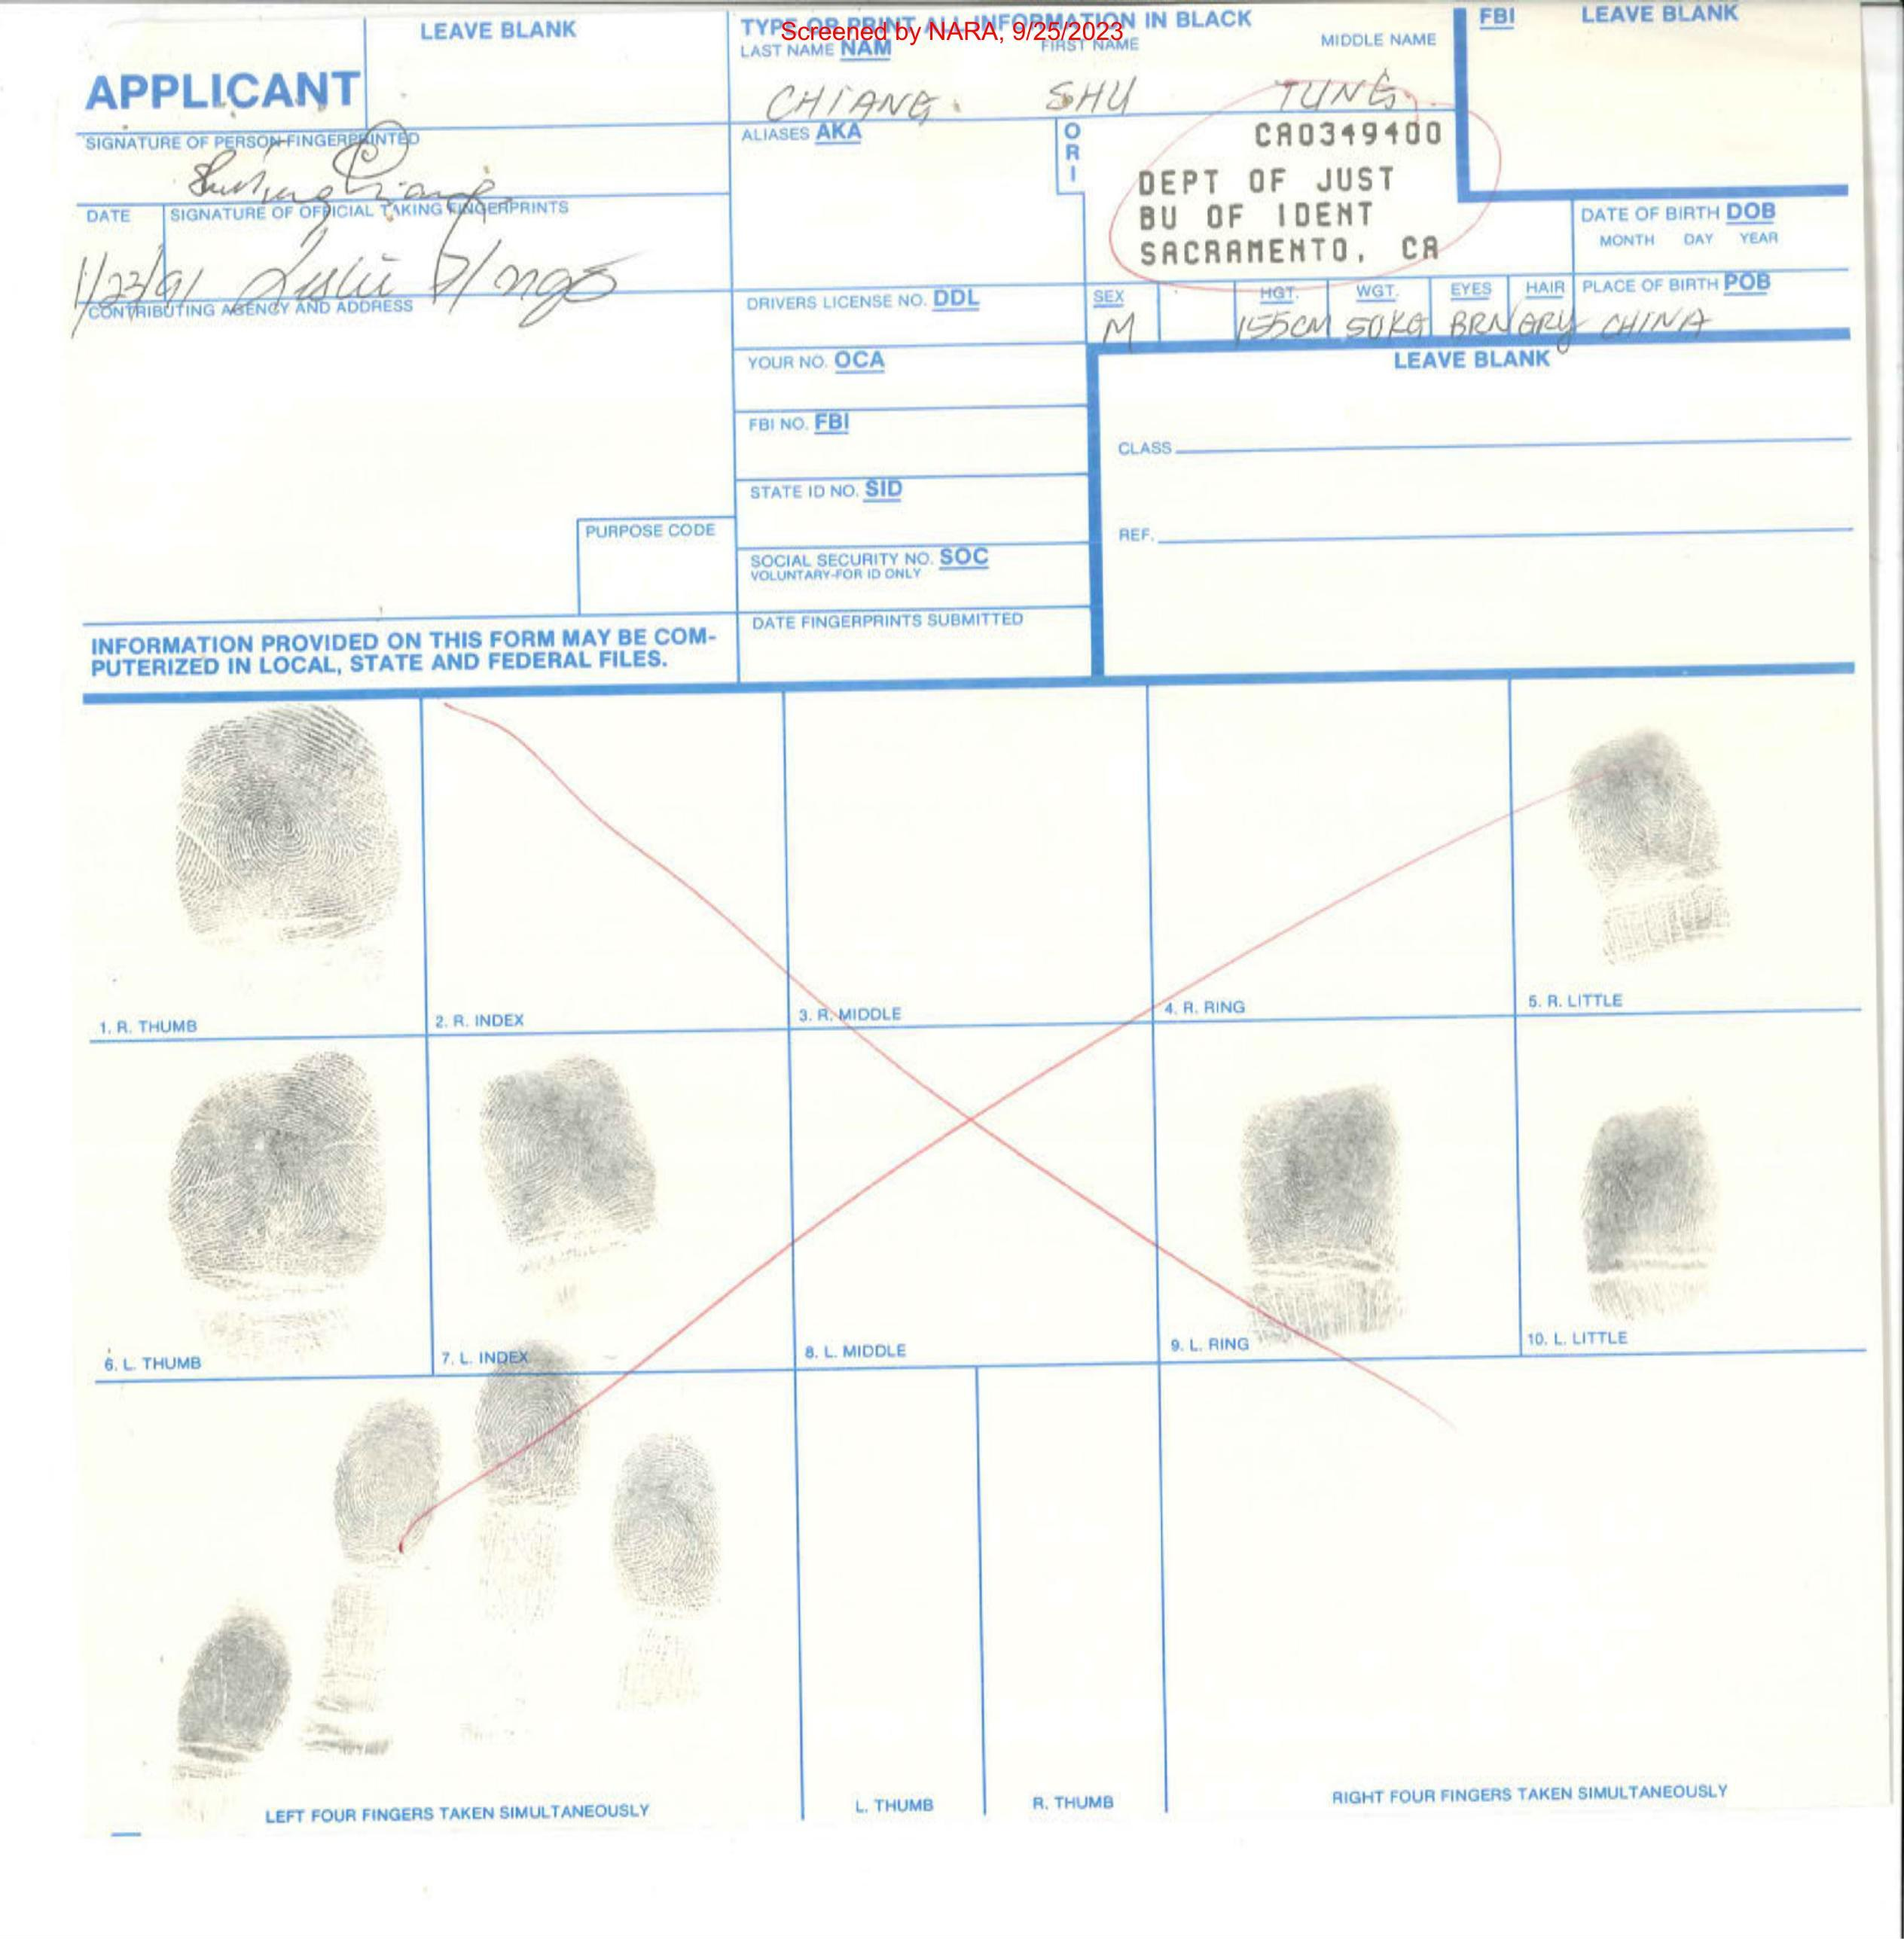 Screened by NARA, 9/25/2023
APPLICANT
LEAVE BLANK
TYPE OR PRINT ALL INFORMATION IN BLACK
LAST NAME NAM
FIRST NAME
MIDDLE NAME
CHIANG. SHU TUNG.
FBI
LEAVE BLANK
SIGNATURE OF PERSON FINGERPRINTED
ALIASES AKA
ORI
CA0349400
DEPT OF JUST
BU OF IDENT
SACRAMENTO, CA
DATE
SIGNATURE OF OFFICIAL TAKING FINGERPRINTS
1/23/91
DATE OF BIRTH DOB
MONTH DAY YEAR
CONTRIBUTING AGENCY AND ADDRESS
DRIVERS LICENSE NO. DDL
SEX
HGT.
WGT.
EYES
HAIR
PLACE OF BIRTH POB
M 155CM 50KG BRN GRY CHINA
YOUR NO. OCA
LEAVE BLANK
FBI NO. FBI
CLASS
STATE ID NO. SID
PURPOSE CODE
REF.
SOCIAL SECURITY NO. SOC
VOLUNTARY-FOR ID ONLY
DATE FINGERPRINTS SUBMITTED
INFORMATION PROVIDED ON THIS FORM MAY BE COM-
PUTERIZED IN LOCAL, STATE AND FEDERAL FILES.
1. R. THUMB
2. R. INDEX
3. R. MIDDLE
4. R. RING
5. R. LITTLE
6. L. THUMB
7. L. INDEX
8. L. MIDDLE
9. L. RING
10. L. LITTLE
LEFT FOUR FINGERS TAKEN SIMULTANEOUSLY
L. THUMB
R. THUMB
RIGHT FOUR FINGERS TAKEN SIMULTANEOUSLY